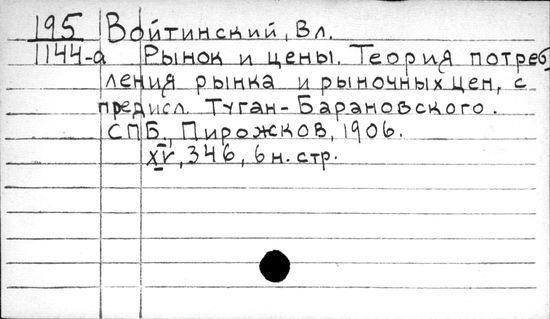 195 Войтинский, Вл.
1144-а Рынок и цены. Теория потреб
ления рынка и рыночных цен, с
предисл. Туган-Барановского.
СПБ., Пирожков, 1906.
XV, 346, 6 н. стр.